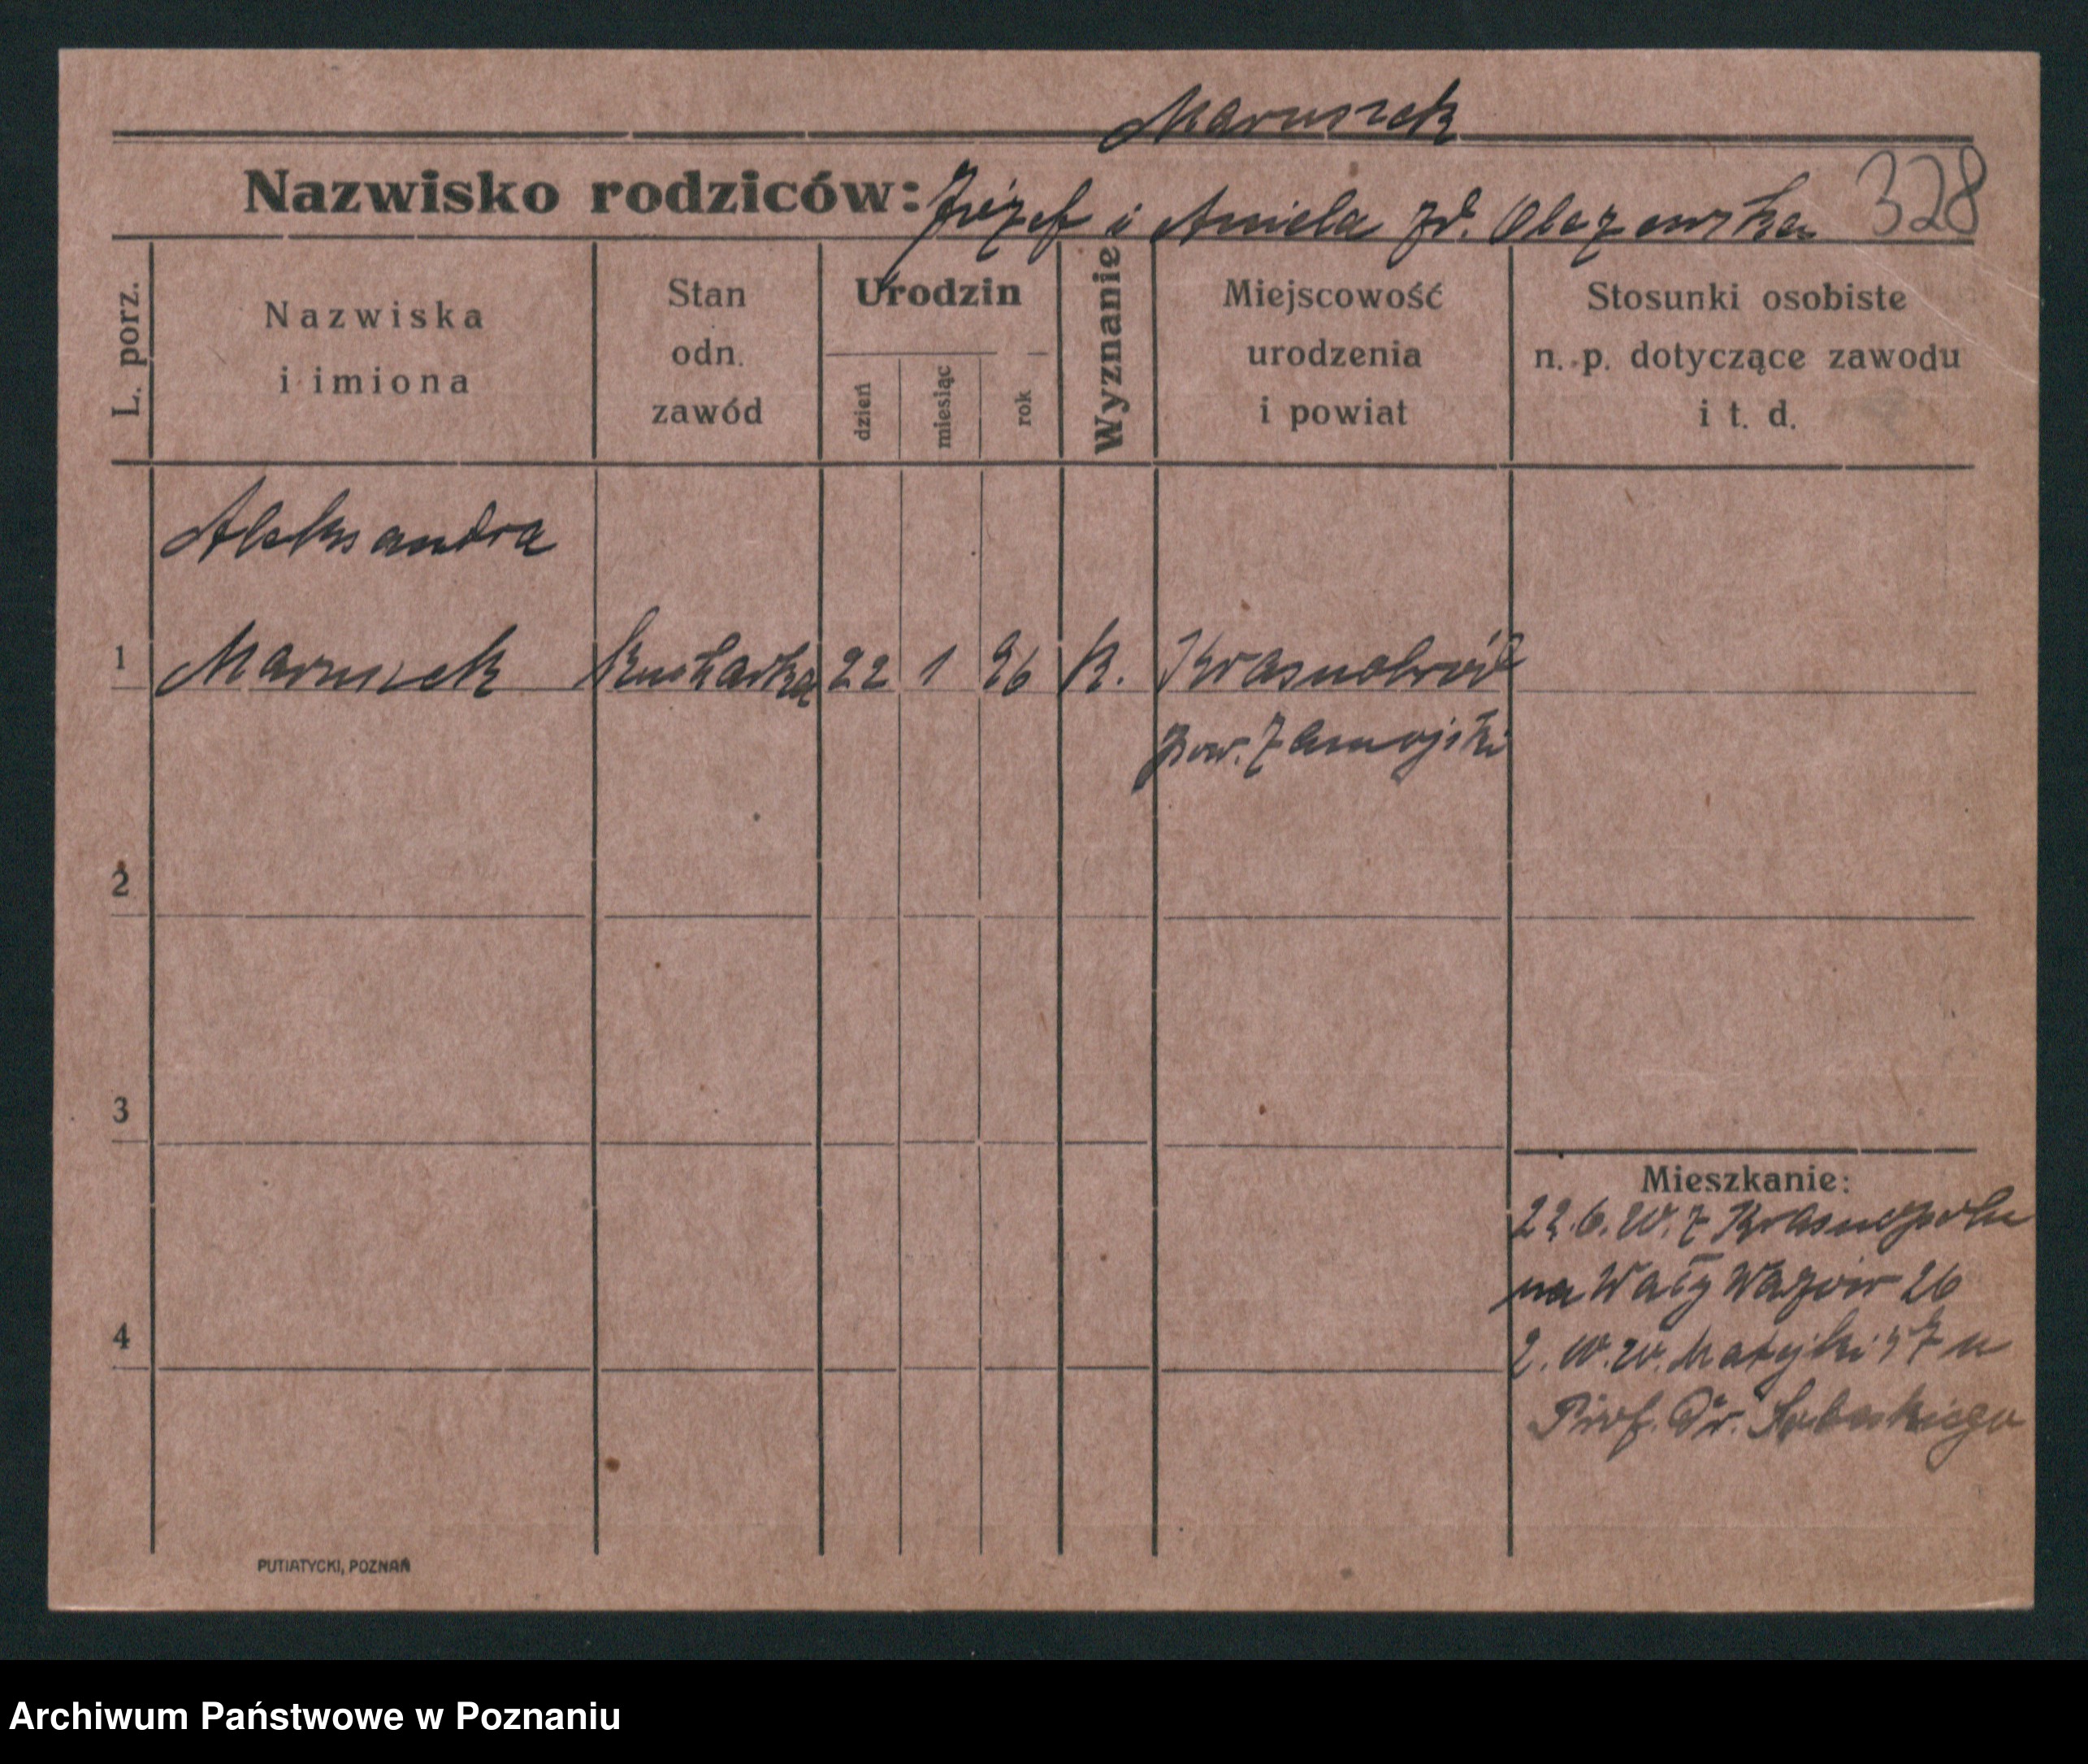 Maruszek
Nazwisko rodziców: Józef i Aniela zd. Olszewska 328
L. porz.
Nazwiska
i imiona
Stan
odn.
zawód
Urodzin
dzień
miesiąc
rok
Wyznanie
Miejscowość
urodzenia
i powiat
Stosunki osobiste
n. p. dotyczące zawodu
i t. d.
Aleksandra
1 Maruszek Kucharka 22 1 96 k. Krasnobród
pow. Zamojski
2
3
Mieszkanie:
22.6. z Krasnopola
na Wały Wazów 26
4
2. Matejki 57 u
Prof. Dr.
PUTIATYCKI, POZNAŃ
Archiwum Państwowe w Poznaniu